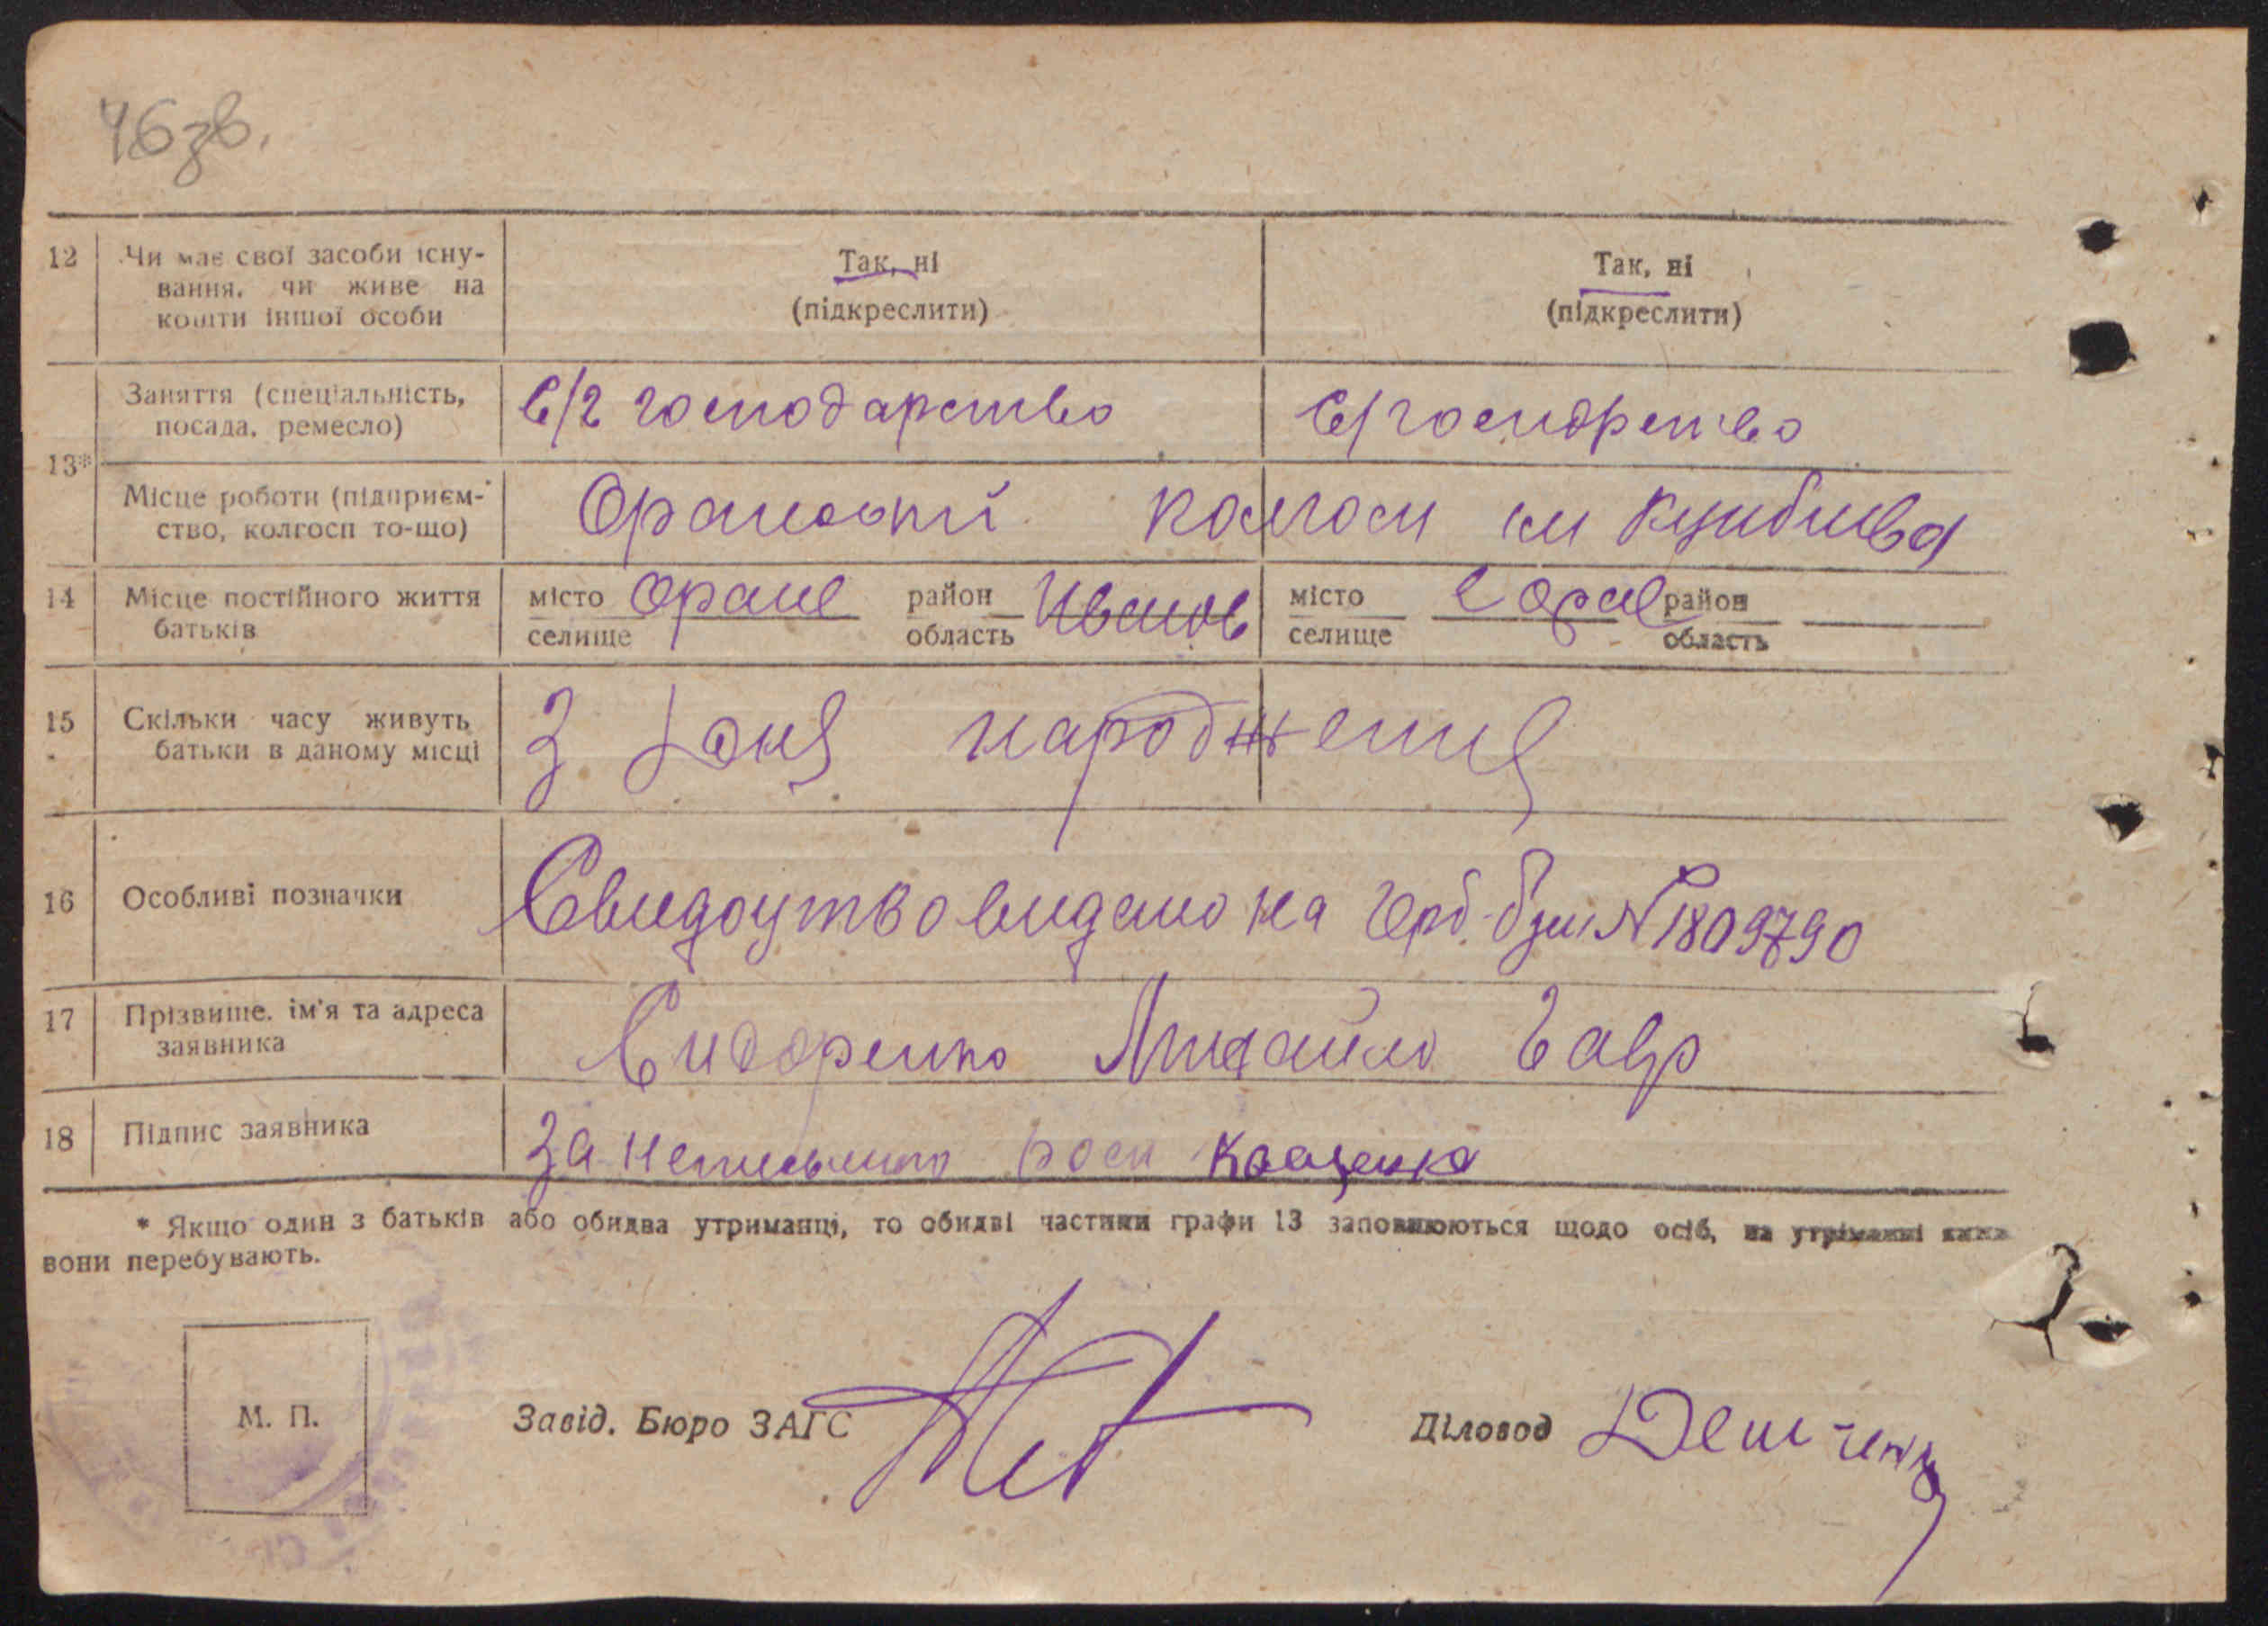 46зв.
12 Чи має свої засоби існу-
вання, чи живе на
кошти іншої особи
Так, ні
(підкреслити)
Так, ні
(підкреслити)
13*
Заняття (спеціальність,
посада, ремесло)
С/г господарство
С/господрство
Місце роботи (підприєм-
ство, колгосп то-що)
Оранський колгосп ім Куйбишева
14 Місце постійного життя
батьків
місто
селище
Оране
район
область
Іванов
місто
селище
с Оране
район
область
15 Скільки часу живуть
батьки в даному місці
З дня народження
16 Особливі позначки
Свидоцтво видано на герб. бум N 1809790
17 Прізвише, ім'я та адреса
заявника
Сидоренко Михайло Гавр
18 Підпис заявника
За неписьмен росп
* Якщо один з батьків або обидва утриманці, то обидві частини графи 13 заповнюються щодо осіб, на утріманні яких
вони перебувають.
М. П.
Завід. Бюро ЗАГС
Діловод